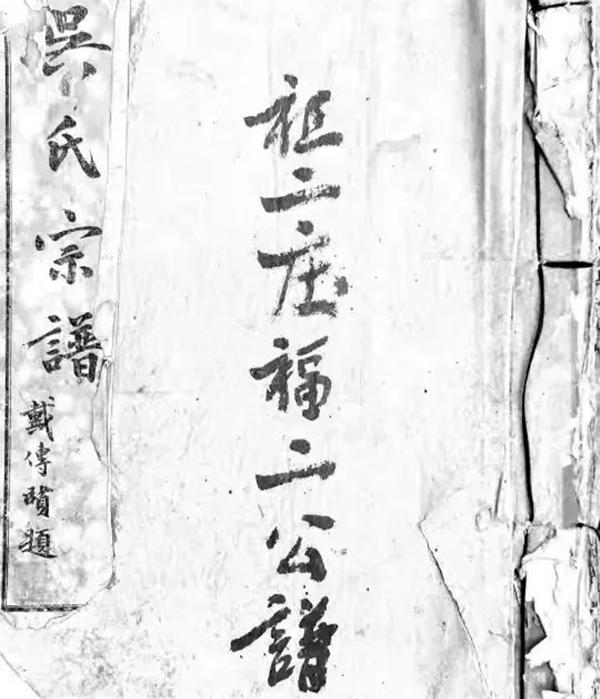 祖二庄福二公譜
吳氏宗譜
戴傳賢題